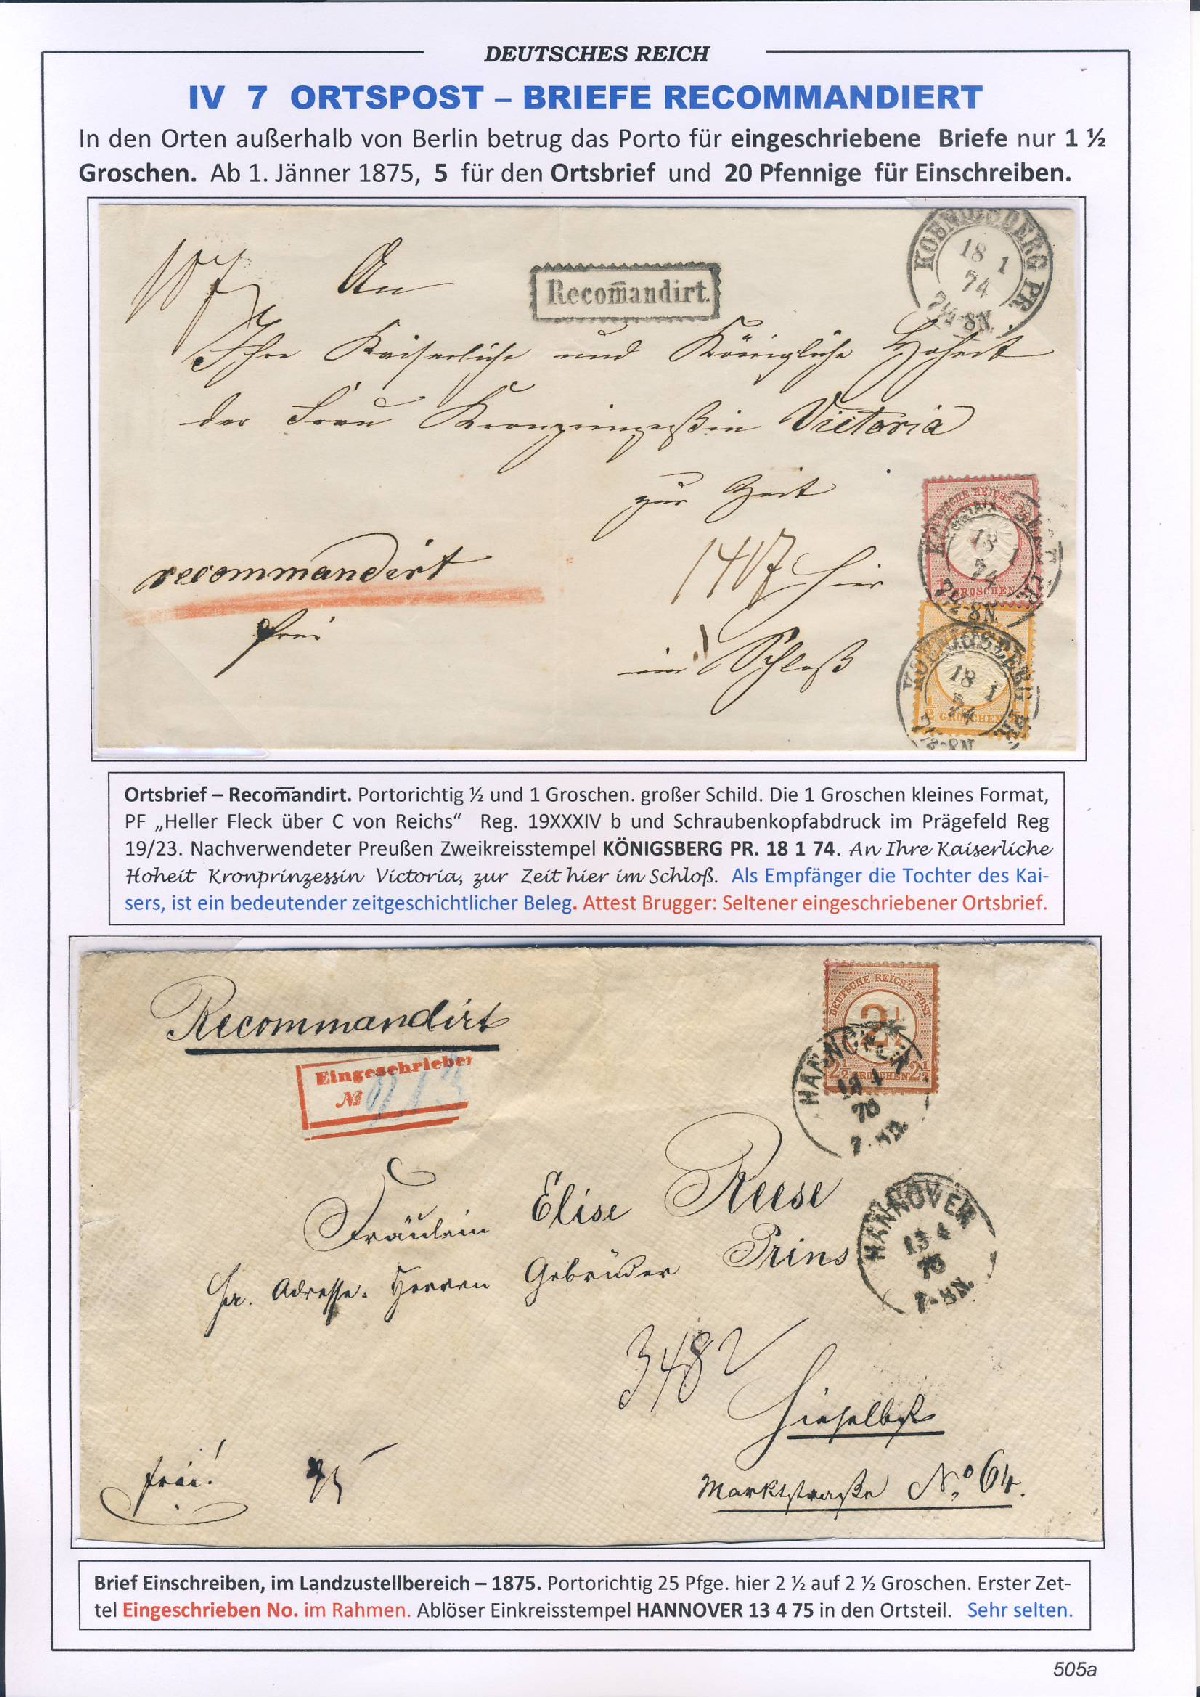 DEUTSCHES REICH
IV 7 ORTSPOST – BRIEFE RECOMMANDIERT
In den Orten außerhalb von Berlin betrug das Porto für eingeschriebene Briefe nur 1 ½
Groschen. Ab 1. Jänner 1875, 5 für den Ortsbrief und 20 Pfennige für Einschreiben.
KOENIGSBERG PR.
18 1
74
7½-8N.
An
Recom̄andirt.
Ihre Kaiserliche und Königliche Hoheit
der Frau Kronprinzeßin Victoria
zur Zeit
recommandirt
hier
frei
im Schloß
DEUTSCHE REICHS-POST
GROSCHEN
18 1
74
7½-8N.
KOENIGSBERG PR.
18 1
74
7½-8N.
GROSCHEN
Ortsbrief – Recom̄andirt. Portorichtig ½ und 1 Groschen. großer Schild. Die 1 Groschen kleines Format,
PF „Heller Fleck über C von Reichs“ Reg. 19XXXIV b und Schraubenkopfabdruck im Prägefeld Reg
19/23. Nachverwendeter Preußen Zweikreisstempel KÖNIGSBERG PR. 18 1 74. An Ihre Kaiserliche
Hoheit Kronprinzessin Victoria, zur Zeit hier im Schloß. Als Empfänger die Tochter des Kai-
sers, ist ein bedeutender zeitgeschichtlicher Beleg. Attest Brugger: Seltener eingeschriebener Ortsbrief.
Recommandirt
DEUTSCHE REICHS-POST
2½
2½ GROSCHEN 2½
HANNOVER
13 4
75
7-8N.
Eingeschrieben
No
Fräulein Elise Reese
Adresse. Herren Gebrüder Prins
HANNOVER
13 4
75
7-8N.
3482
Hieselbst
frei!
Marktstraße No 64.
Brief Einschreiben, im Landzustellbereich – 1875. Portorichtig 25 Pfge. hier 2 ½ auf 2 ½ Groschen. Erster Zet-
tel Eingeschrieben No. im Rahmen. Ablöser Einkreisstempel HANNOVER 13 4 75 in den Ortsteil. Sehr selten.
505a